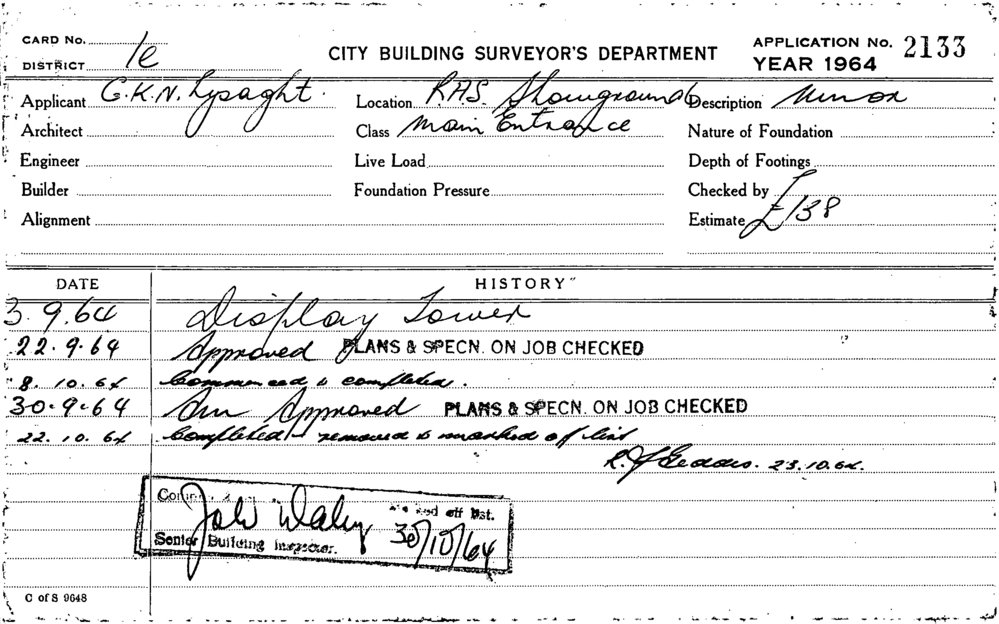 CARD No. CITY BUILDING SURVEYOR'S DEPARTMENT APPLICATION No. 2133
DISTRICT 1e YEAR 1964
Applicant G.K.N. Lysaght. Location RAS. Showground Description Minor
Architect Class Main Entrance Nature of Foundation
Engineer Live Load Depth of Footings
Builder Foundation Pressure Checked by
Alignment Estimate £138
DATE HISTORY
3.9.64 Display Tower
22.9.64 Approved PLANS & SPECN. ON JOB CHECKED
8.10.64 Commenced & completed.
30.9.64 Approved PLANS & SPECN. ON JOB CHECKED
22.10.64 Completed removed & marked off list
R. J. Geddes. 23.10.64.
off list.
30/10/64
Senior Building Inspector.
C of S 9648